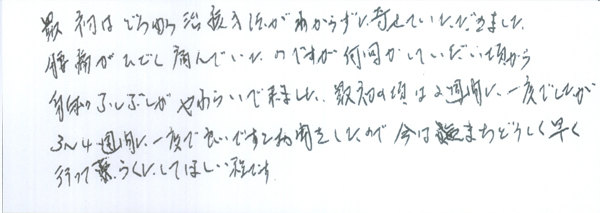 最初はどういう治療方法がわからずに寄せていただきました。
腰痛がひどく痛んでいたのですが何回かしていただいた頃から
身体のふしぶしがやわらいで来ました。最初の頃は2週間に一度でしたが
3〜4週間に一度で良いですと お聞きしたので 今は待ちどうしく早く
行って楽にしてほしい程です